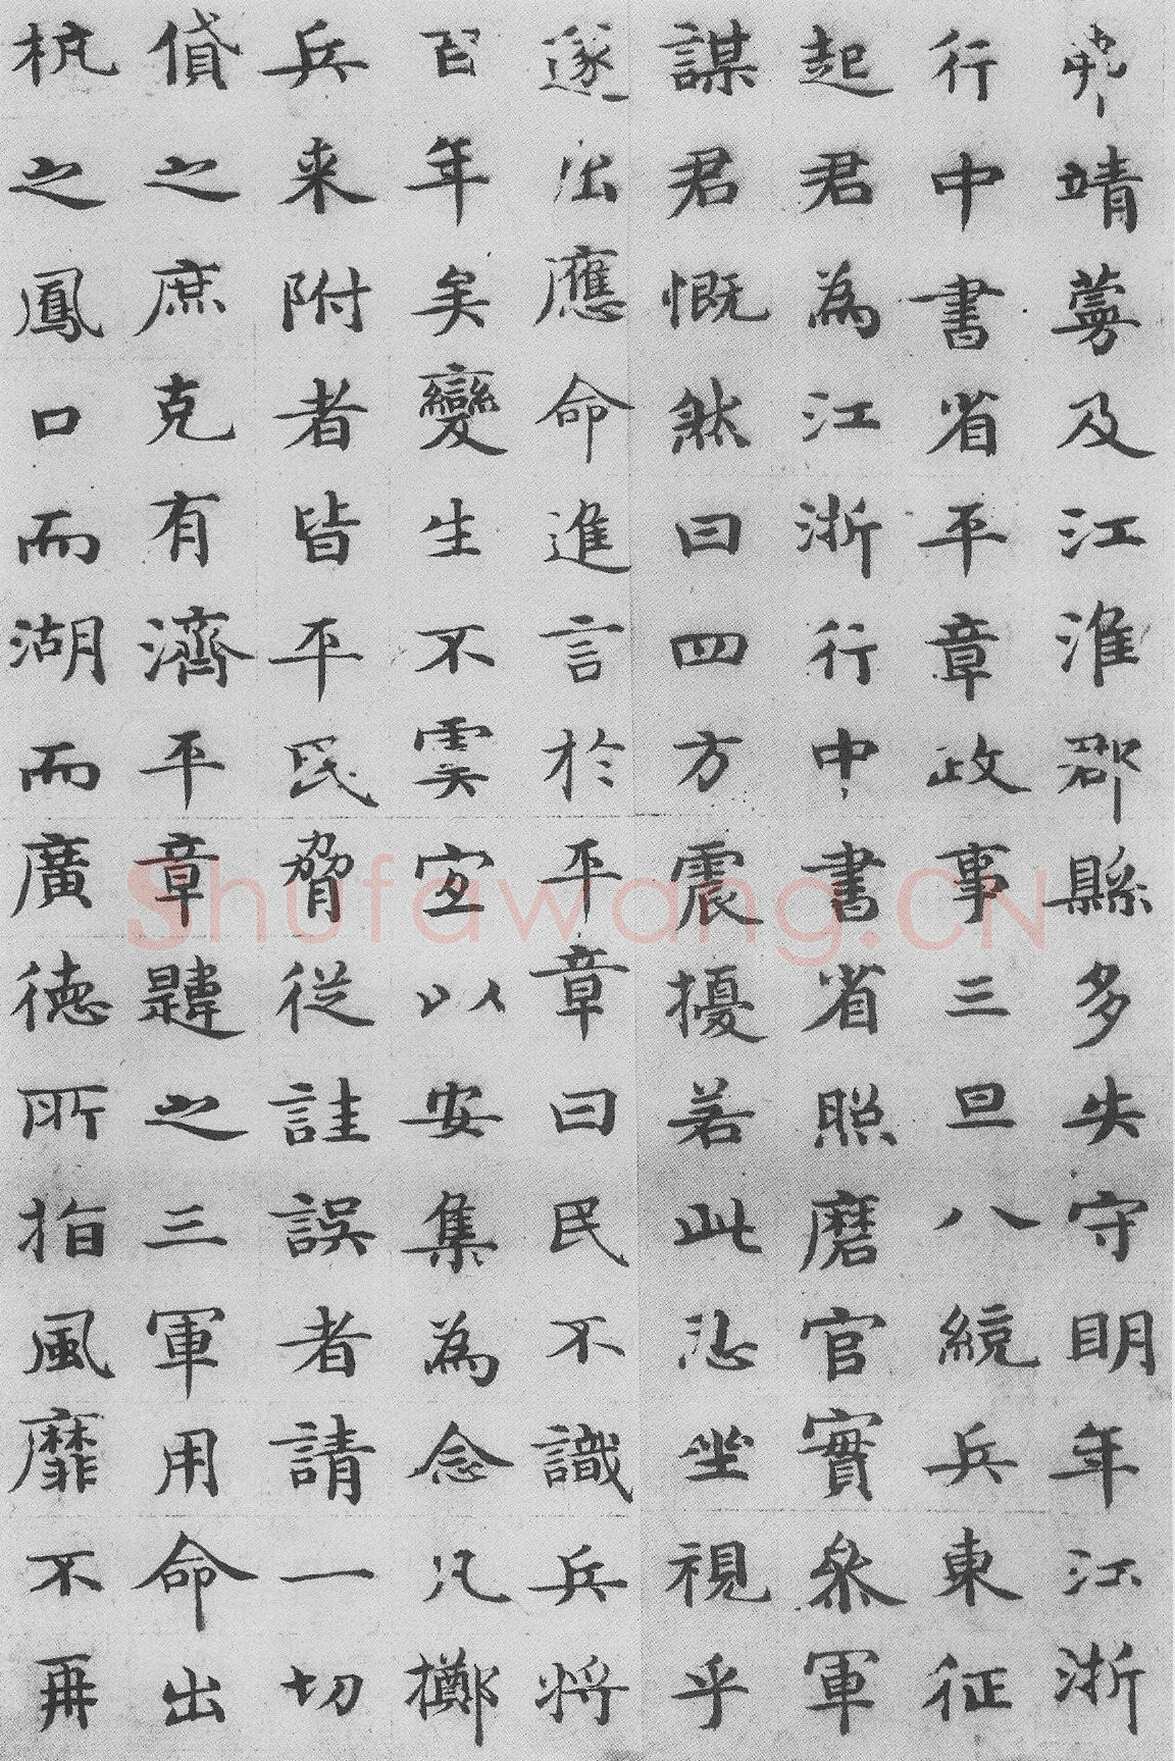 靖蘄及江淮郡縣多失守明年江浙
行中書省平章政事三旦八統兵東征
起君為江浙行中書省照磨官實叅軍
謀君慨然曰四方震擾若此忍坐視乎
遂出應命進言於平章曰民不識兵將
百年矣變生不虞宜以安集為念凡擲
兵来附者皆平民脅從詿誤者請一切
貸之庶克有濟平章韙之三軍用命出
杭之鳳口而湖而廣德所指風靡不再
Shufawang.CN